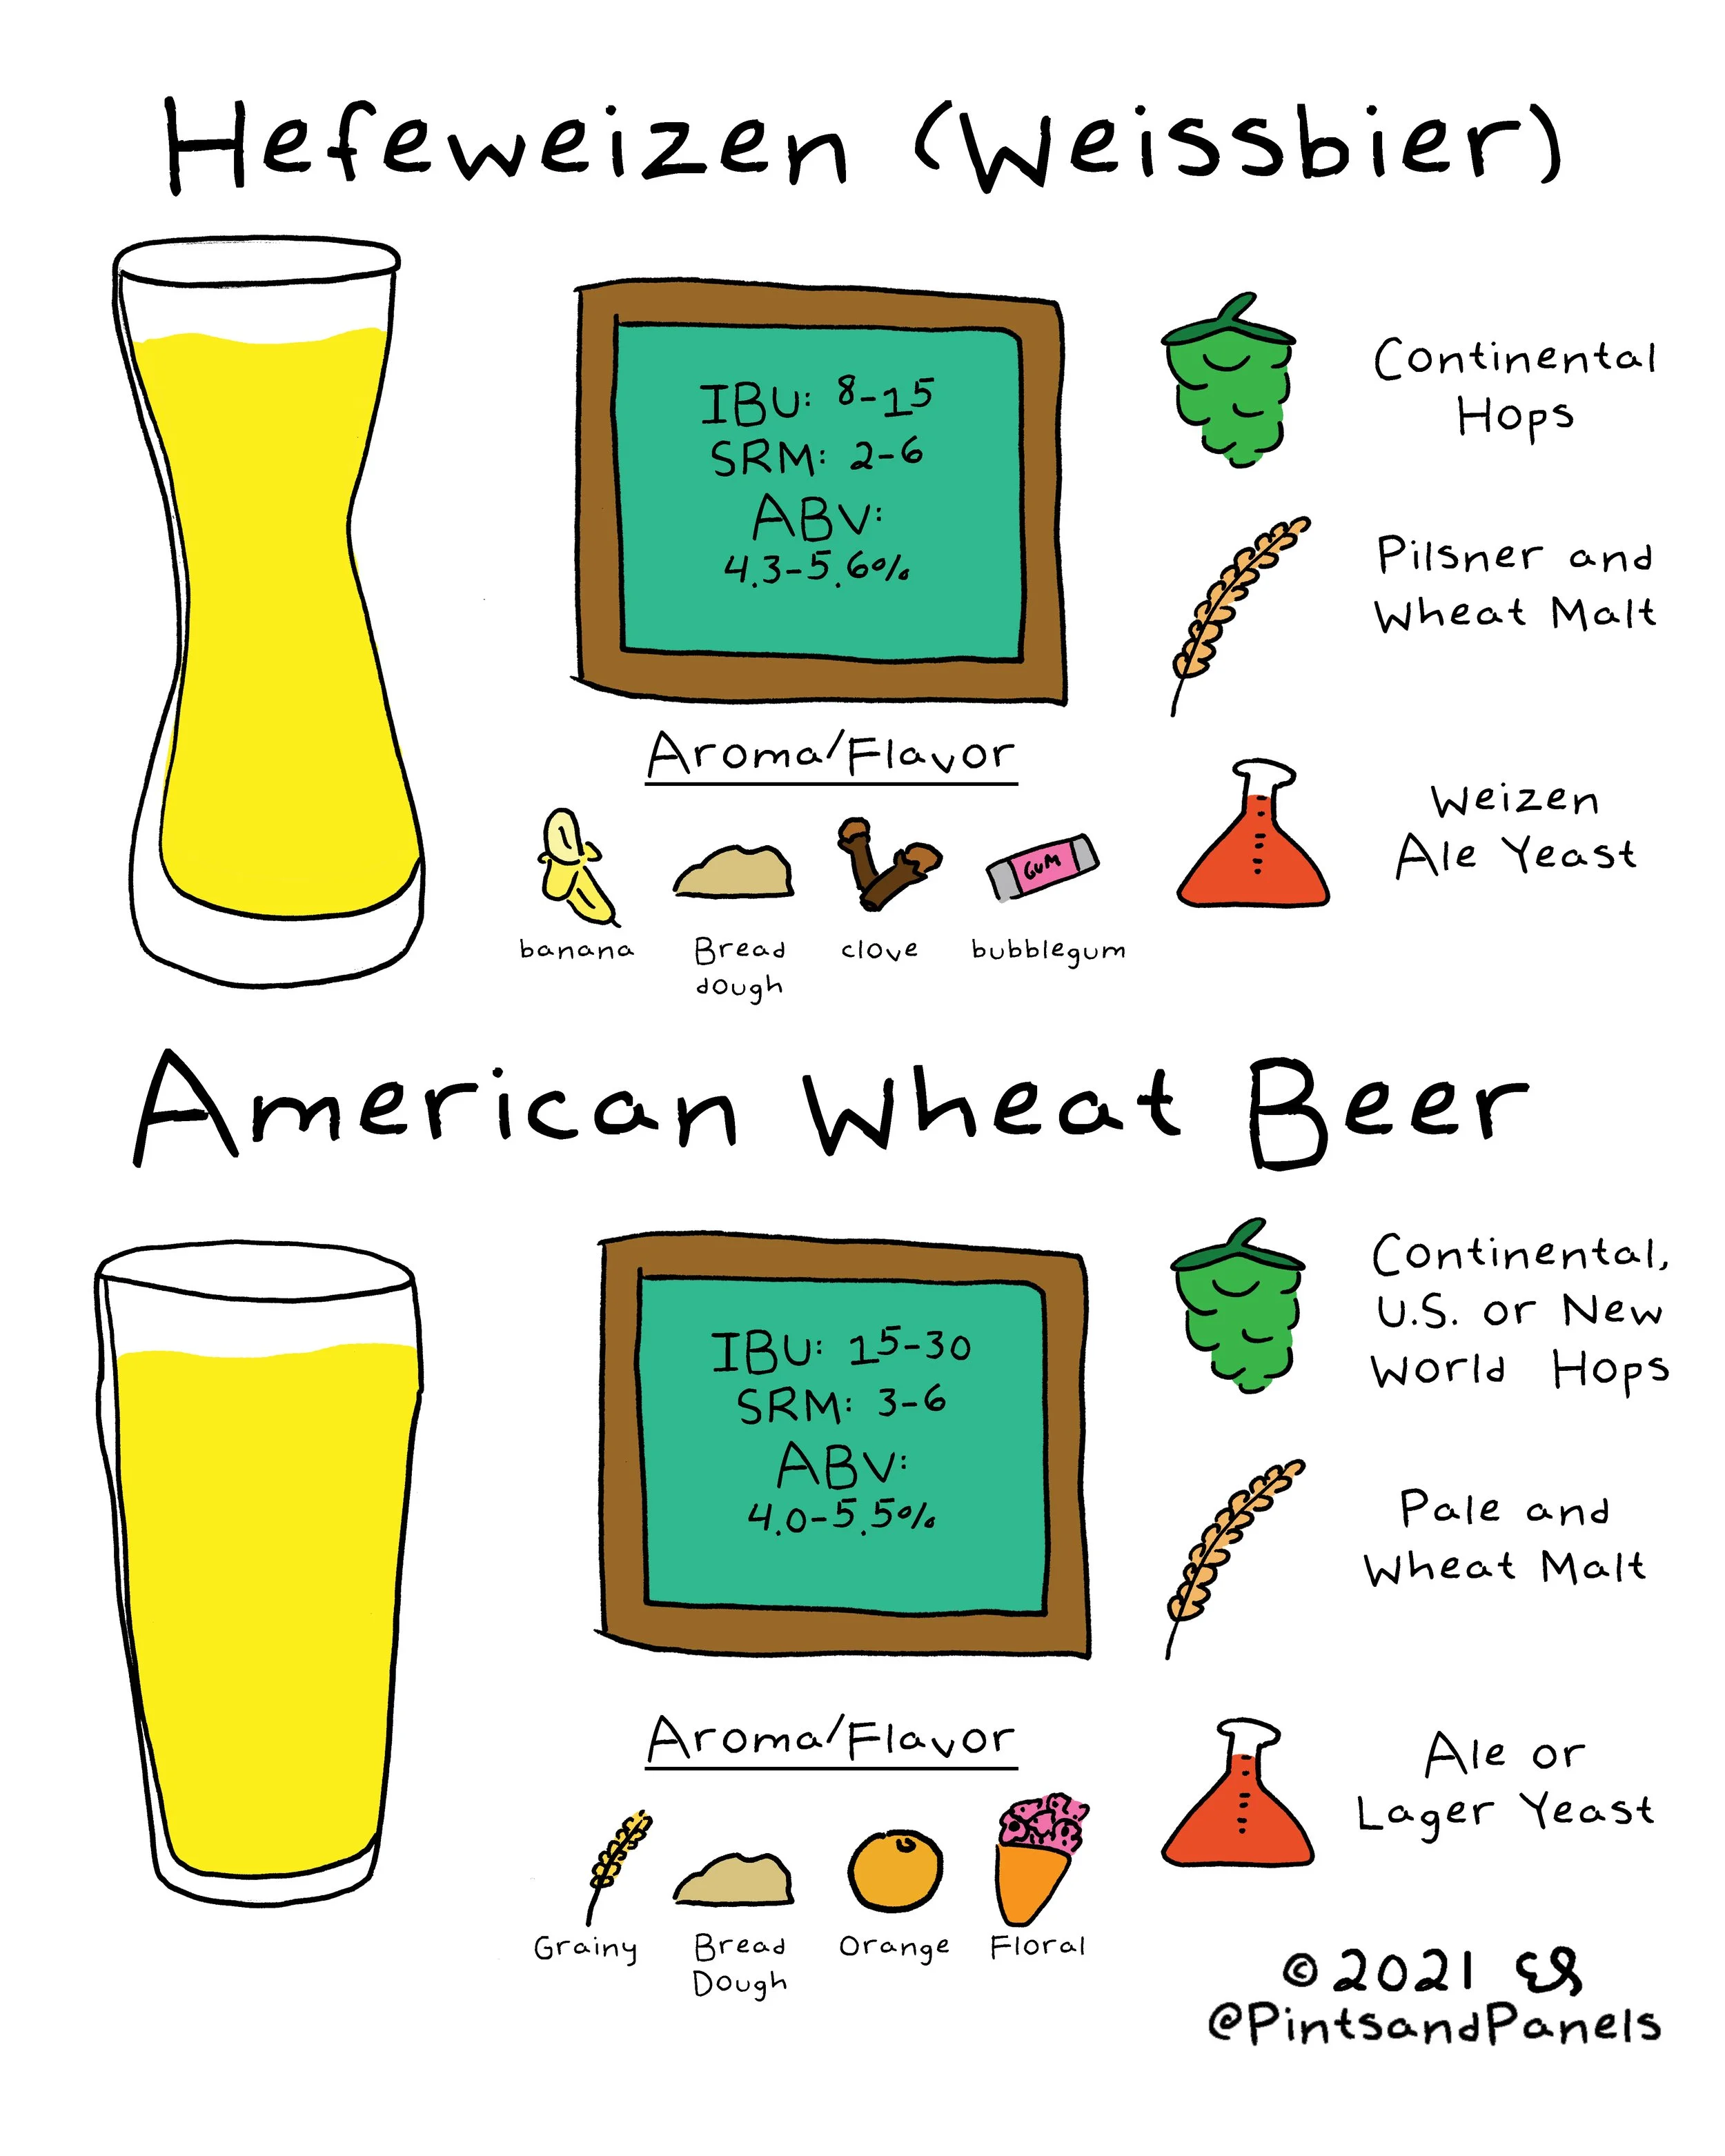 Hefeweizen (Weissbier)
IBU: 8-15
SRM: 2-6
ABV:
4.3-5.6%
Continental
Hops
Pilsner and
Wheat Malt
Weizen
Ale Yeast
Aroma/Flavor
banana
Bread
dough
clove
GUM
bubblegum
American Wheat Beer
IBU: 15-30
SRM: 3-6
ABV:
4.0-5.5%
Continental,
U.S. or New
World Hops
Pale and
Wheat Malt
Ale or
Lager Yeast
Aroma/Flavor
Grainy
Bread
Dough
Orange
Floral
© 2021 ES
@PintsandPanels